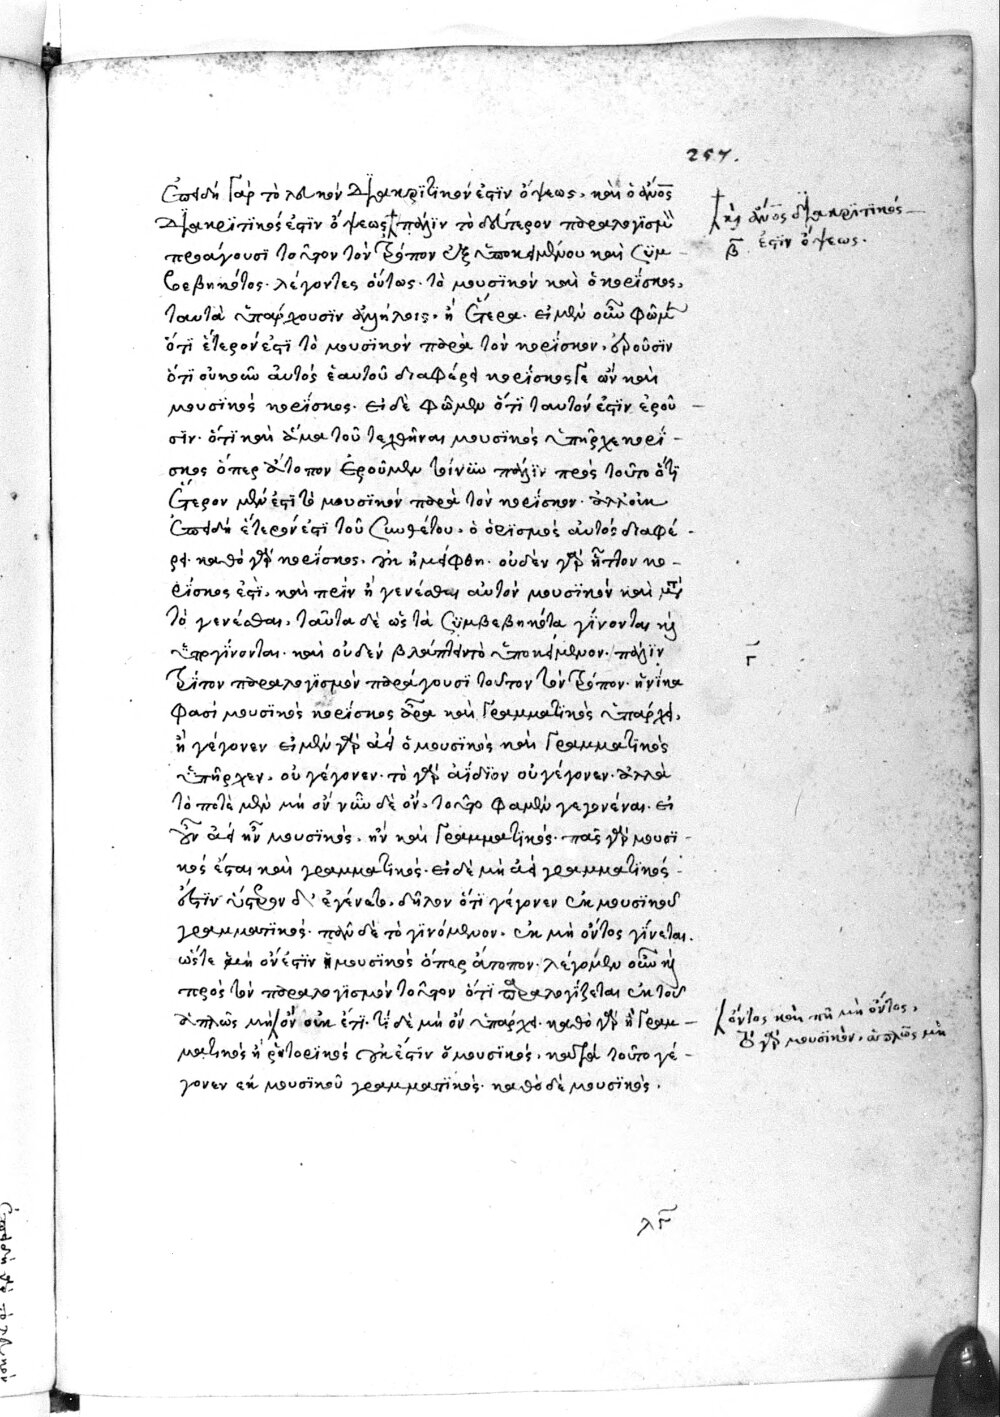 257.
Ἐπειδὴ γὰρ τὸ λευκὸν διακριτικόν ἐστιν ὄψεως, καὶ ὁ ἄνος
διακριτικός ἐστιν ὄψεως πάλιν τὸ δεύτερον παραλογισμὸν
προάγουσι τοῦτον τὸν τρόπον ἐξ ὑποκειμένου καὶ συμ-
βεβηκότος. λέγοντες οὕτως. τὸ μουσικὸν καὶ ὁ κορίσκος,
ταυτὰ ὑπάρχουσιν ἀλλήλοις, ἢ ἕτερα. εἰ μὲν οὖν φῶμεν
ὅτι ἕτερόν ἐστι τὸ μουσικὸν παρὰ τὸν κορίσκον, ἐροῦσιν
ὅτι οὐκοῦν αὐτὸς ἑαυτοῦ διαφέρει κορίσκος γε ὢν καὶ
μουσικὸς κορίσκος. εἰ δὲ φῶμεν ὅτι ταυτόν ἐστιν ἐροῦ-
σιν. ὅτι καὶ ἅμα τοῦ τεχθῆναι μουσικὸς ὑπῆρχε κορί-
σκος ὅπερ ἄτοπον ἐροῦμεν τοίνυν πάλιν πρὸς τοῦτο ὅτι
ἕτερον μέν ἐστι τὸ μουσικὸν παρὰ τὸν κορίσκον. ἀλλ' οὐκ
ἐπειδὴ ἕτερόν ἐστι τοῦ συνθέτου, ὁ ὁρισμὸς αὐτὸς διαφέ-
ρει. καθὸ γὰρ κορίσκος, οὐκ ἠμείφθη. οὐδὲν γὰρ ἧττον κο-
ρίσκος ἐστὶ, καὶ πρὶν ἢ γενέσθαι αὐτὸν μουσικὸν καὶ μετὰ
τὸ γενέσθαι, ταῦτα δὲ ὡς τὰ συμβεβηκότα γίνονται καὶ
ἀπογίνονται. καὶ οὐδὲν βλάπτει τὸ ὑποκείμενον. πάλιν
τρίτον παραλογισμὸν παράγουσι τοῦτον τὸν τρόπον. ἡνίκα
φασὶ μουσικὸς κορίσκος ἆρα καὶ γραμματικὸς ὑπάρχει,
ἢ γέγονεν εἰ μὲν γὰρ ἀεὶ ὁ μουσικὸς καὶ γραμματικὸς
ὑπῆρχεν, οὐ γέγονεν. τὸ γὰρ ἀΐδιον οὐ γέγονεν. ἀλλὰ
τὸ ποτὲ μὲν μὴ ὂν νῦν δὲ ὂν, τοῦτο φαμὲν γεγονέναι. εἰ
οὖν ἀεὶ ἦν μουσικὸς, ἦν καὶ γραμματικός. πᾶς γὰρ μουσι-
κὸς ἔσται καὶ γραμματικός. εἰ δὲ μὴ ἀεὶ γραμματικός
ἐστιν ὕστερον δ' ἐγένετο, δῆλον ὅτι γέγονεν ἐκ μουσικοῦ
γραμματικός. πᾶν δὲ τὸ γινόμενον, ἐκ μὴ ὄντος γίνεται.
ὥστε μὴ ὄν ἐστιν ὁ μουσικὸς ὅπερ ἄτοπον. λέγομεν οὖν καὶ
πρὸς τὸν παραλογισμὸν τοῦτον ὅτι παραλογίζεται ἐκ τοῦ
ἁπλῶς μὴ ὂν οὐκ ἔστι. τὶ δὲ μὴ ὂν ὑπάρχει. καθὸ γὰρ ἢ γραμ-
ματικὸς ἢ ῥητορικὸς οὐκ ἔστιν ὁ μουσικὸς, κατὰ τοῦτο γέ-
γονεν ἐκ μουσικοῦ γραμματικός. καθὸ δὲ μουσικὸς,
καὶ ἄνος διακριτικός
ἐστιν ὄψεως.
β
γ
ὄντος καὶ πῆ μὴ ὄντος,
τὸ γὰρ μουσικὸν, ἁπλῶς μὴ
λγ